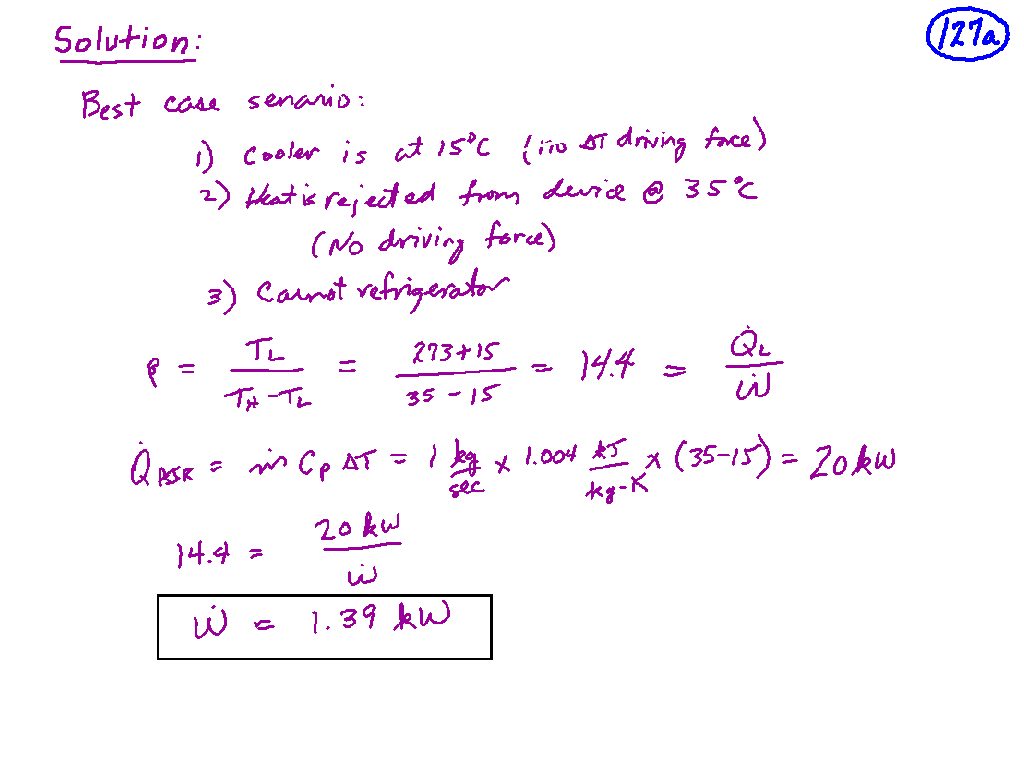 Solution:
127a
Best case senario:
1) Cooler is at 15°C (no ΔT driving force)
2) Heat is rejected from device @ 35°C
(No driving force)
3) Carnot refrigerator
β = T_L / (T_H - T_L) = (273+15) / (35-15) = 14.4 = Q̇_L / Ẇ
Q̇ = ṁ C_p ΔT = 1 kg/sec x 1.004 kJ/kg-K x (35-15) = 20 kW
14.4 = 20 kW / Ẇ
Ẇ = 1.39 kW